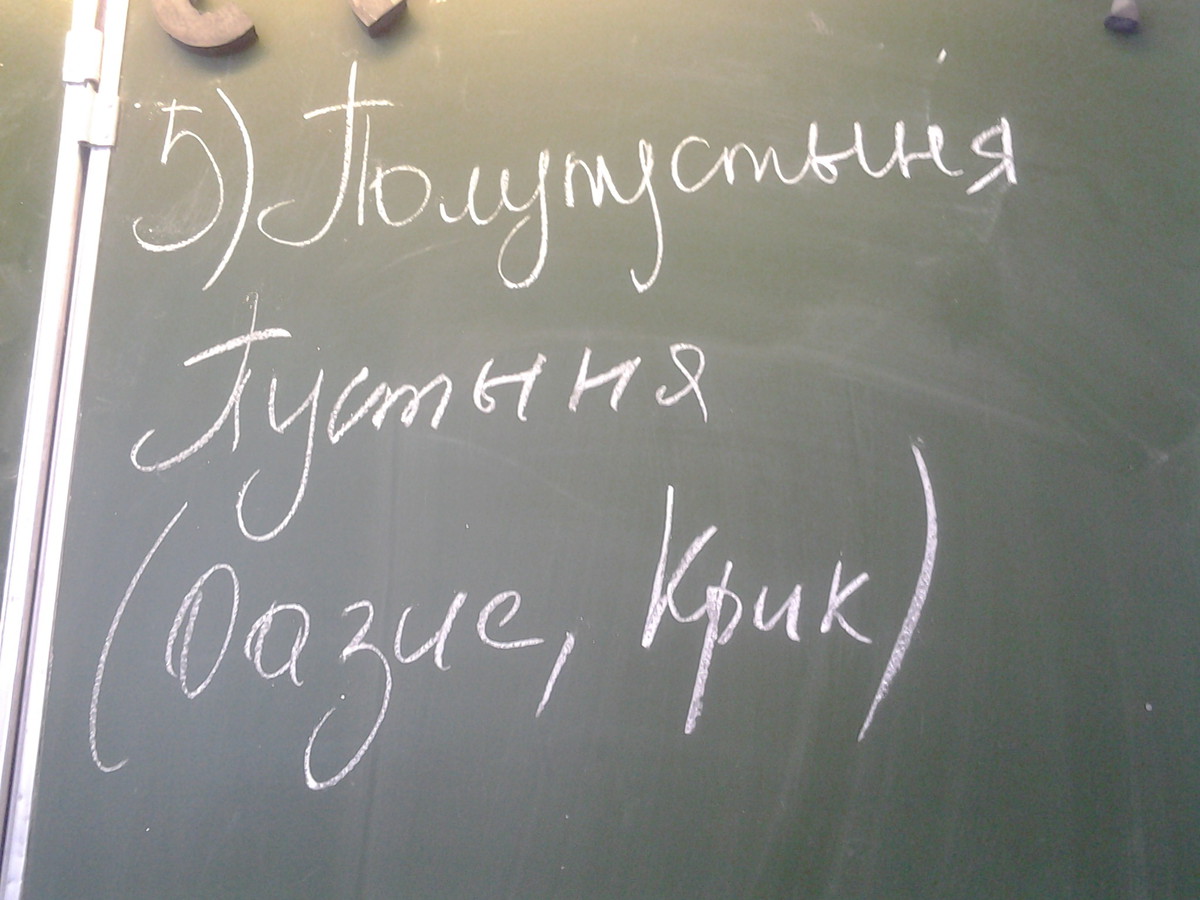 5) Полупустыня
Пустыня
(Оазис, Крик)